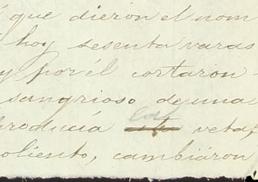 que dieron el nom
hoy sesenta varas
y por él cortaron
sangrioso de unas
producía los veta,
oliento, cambiáron